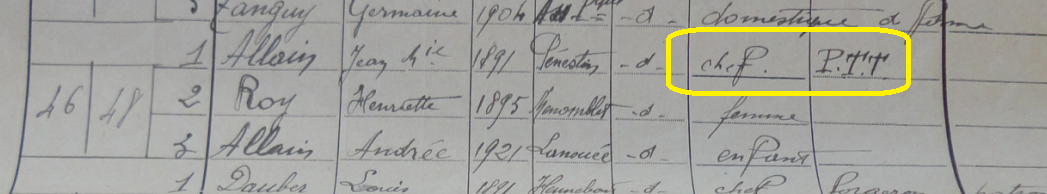 Tanguy Germaine 1904 -d- domestique d ferme
1 Allain Jean Mie 1891 Pénestin -d- chef. P.T.T
46 48 2 Roy Henriette 1895 Menomblet -d- femme
3 Allain Andrée 1921 Lanouée -d- enfant
1 Louis 1891 -d- chef